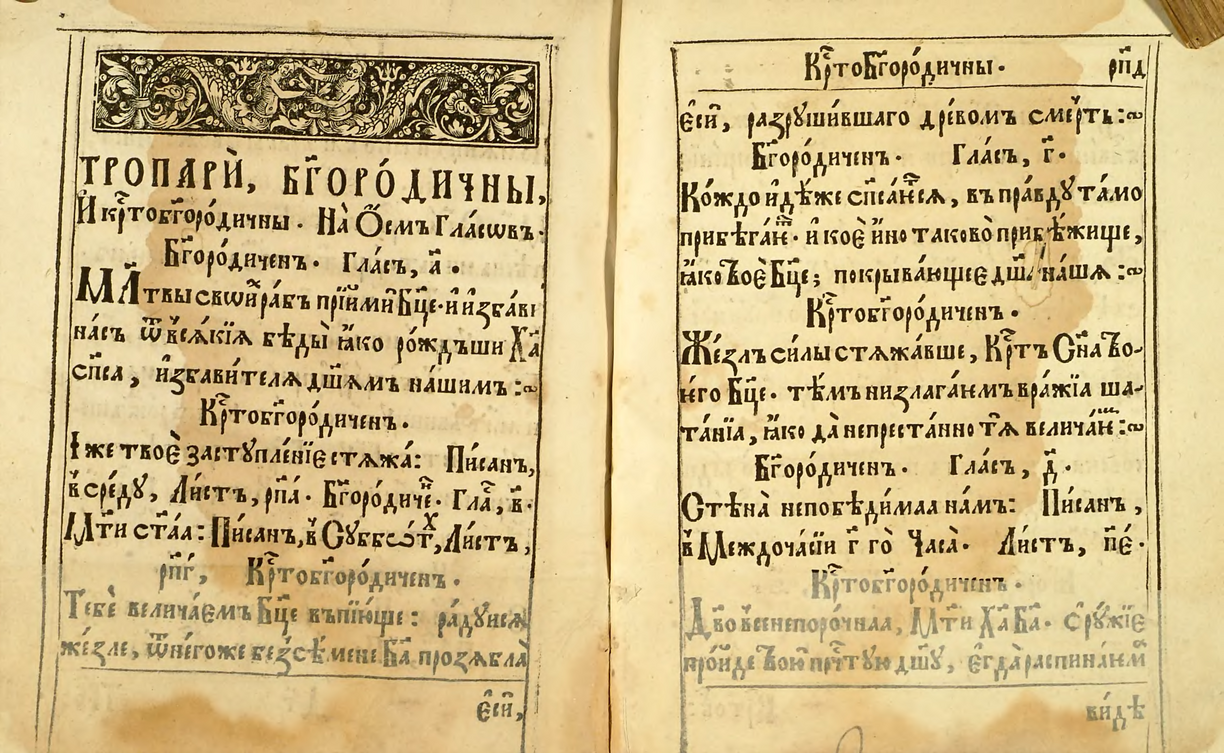 ТРОПАРЍ, БГ҃ОРО́ДИЧНЫ,
И҆ крⷭ҇тобг҃оро́дичны. На̀ О҆́смъ Гла́сѡвъ.
Бг҃оро́диченъ. Гла́съ, а҃.
Мл҃твы свои́хъ ра́бъ прїимѝ Бц҃е. и҆ и҆зба́ви
на́съ ѿ всѧ́кїѧ бѣды̀ ꙗ҆́ко ро́ждъши Хⷭ҇а
сп҃са, и҆зба́вителѧ дш҃а́мъ на́шимъ :~
Крⷭ҇тобг҃оро́диченъ.
І҆́же твоѐ застꙋпле́нїе стѧжа̀: Пи́санъ,
в̾ сре́дꙋ, Ли́стъ, рп҃а. Бг҃оро́диче. Гла, в҃.
Мт҃и ст҃аѧ: Пи́санъ, в̾ Сꙋббѡ́т, Ли́стъ,
рп҃г, Крⷭ҇тобг҃оро́диченъ.
Тебѐ велича́емъ Бц҃е въпїю́ще: ра́дꙋисѧ
же́зле, ѿ него́же безсѣ́мене Бг҃а прозѧбла̀
є҆сѝ,
Крⷭ҇тоБг҃оро́дичны. рп҃д
є҆сѝ, разрꙋши́вшаго дре́вомъ сме́рть :~
Бг҃оро́диченъ. Гла́съ, г҃.
Ко́ждо и҆дѣ́же сп҃са́етсѧ, въ пра́вдꙋ та́мо
прибѣга́етъ. и҆ коѐ и҆́но таково̀ прибѣ́жище,
ꙗ҆́ко Твоѐ Бц҃е; покрыва́ющее дш҃а на́шѧ :~
Крⷭ҇тобг҃оро́диченъ.
Же́злъ си́лы стѧжа́вше, Крⷭ҇тъ Сн҃а Тво-
є҆го̀ Бц҃е. тѣ́мъ низлага́емъ вра́жїа ша-
та́нїа, ꙗ҆́ко да̀ непреста́нно тѧ̀ велича́ем :~
Бг҃оро́диченъ. Гла́съ, д҃.
Стѣна̀ непобѣди́маа на́мъ: Пи́санъ,
в̾ Междоча́сїи г҃ го̀ Часа̀. Ли́стъ, пе҃.
Крⷭ҇тобг҃оро́диченъ.
Дв҃о всенепоро́чнаа, Мт҃и Хⷭ҇а Бг҃а. Ѻ҆рꙋ́жїе
про́йде Твою̀ прчⷭ҇тꙋю дш҃ꙋ, є҆гда̀ распина́ема
ви́дѣ